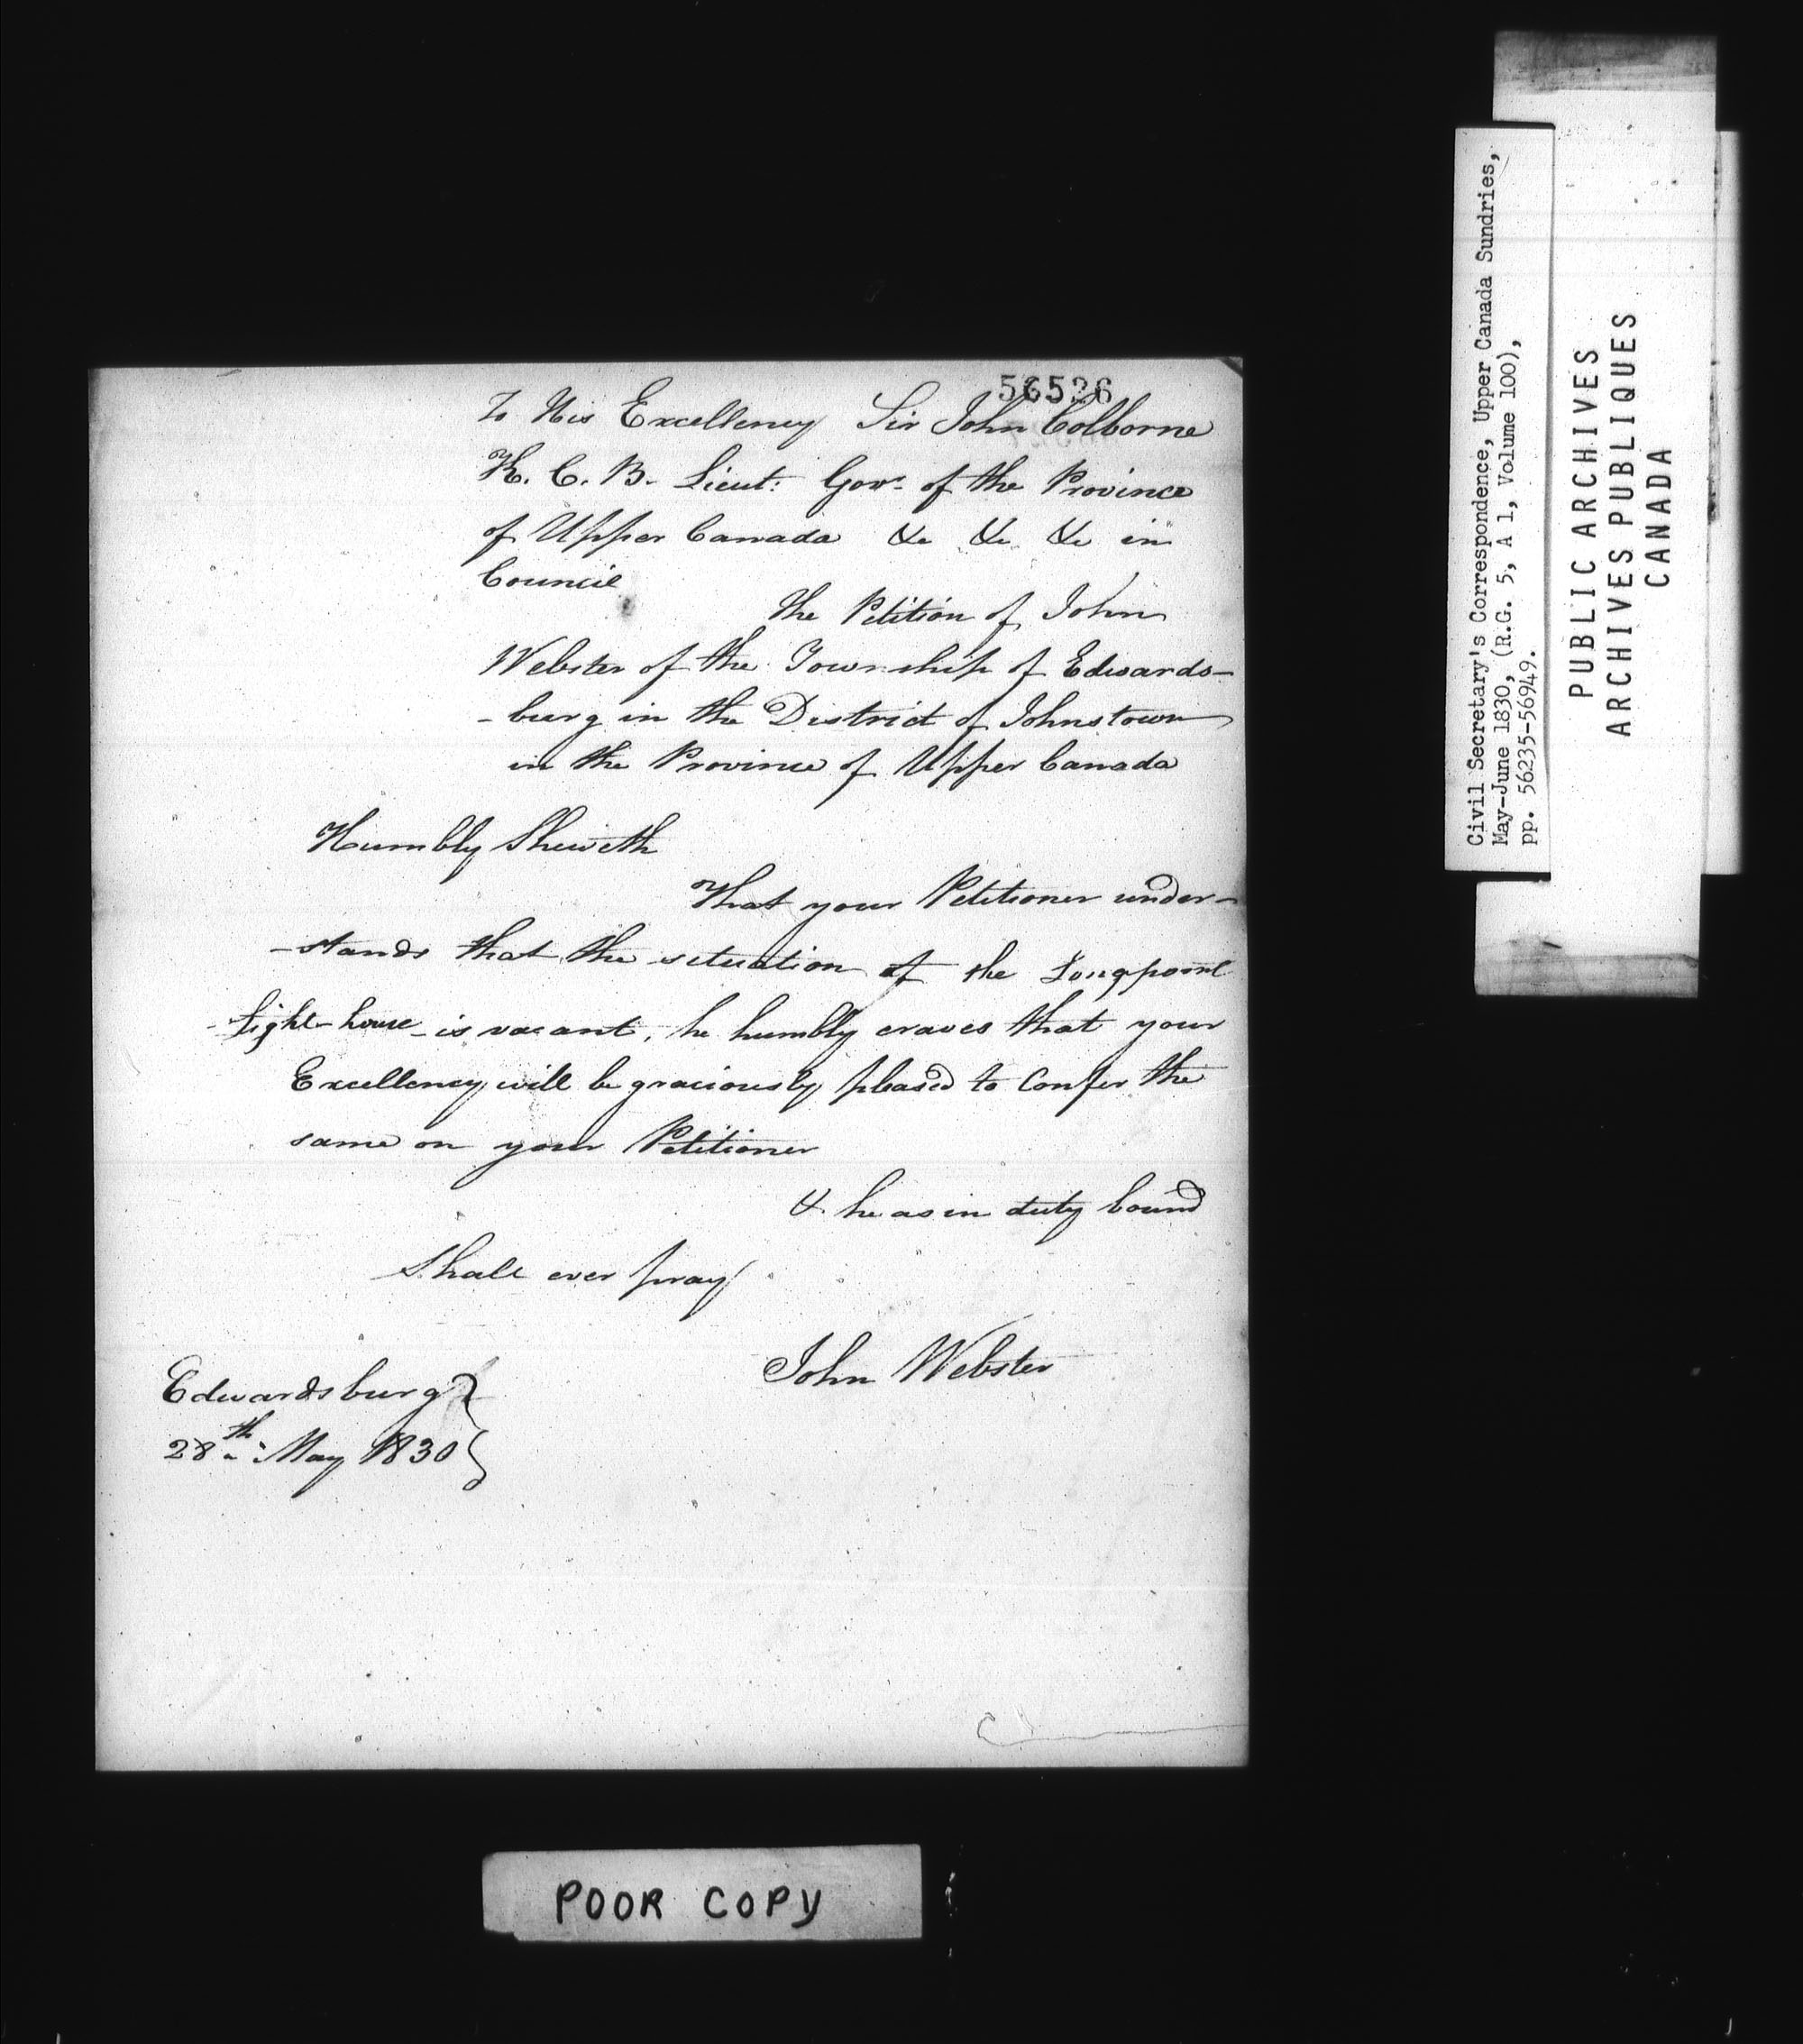 56526
To His Excellency Sir John Colborne
K. C. B. Lieut: Govr. of the Province
of Upper Canada &c &c &c in
Council
The Petition of John
Webster of the Township of Edwards-
-burg in the District of Johnstown
in the Province of Upper Canada
Humbly Sheweth
That your Petitioner under-
-stands that the situation of the Longpoint
Light-house is vacant, he humbly craves that your
Excellency will be graciously pleased to Confer the
same on your Petitioner
& he as in duty bound
Shall ever pray
John Webster
Edwardsburg
28th May 1830
POOR COPY
Civil Secretary's Correspondence, Upper Canada Sundries,
May-June 1830, (R.G. 5, A 1, Volume 100),
pp. 56235-56949.
PUBLIC ARCHIVES
ARCHIVES PUBLIQUES
CANADA